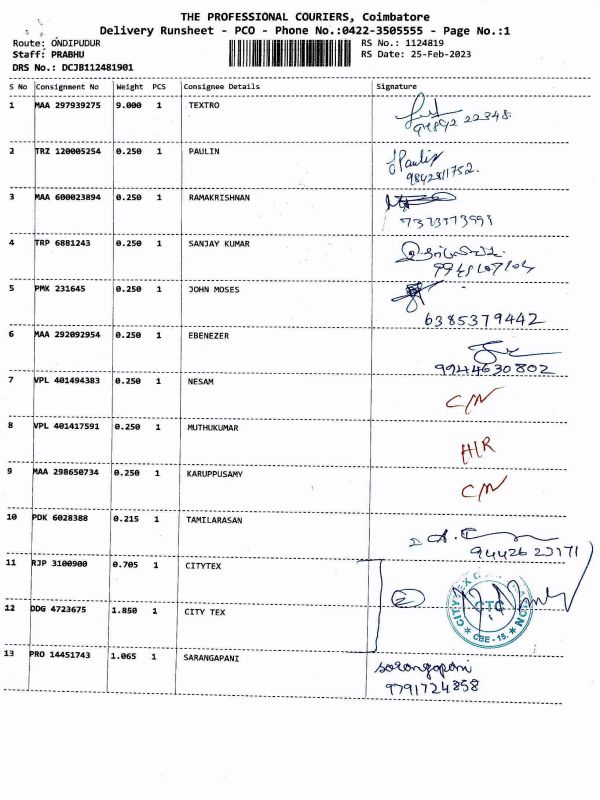 THE PROFESSIONAL COURIERS, Coimbatore
Delivery Runsheet - PCO - Phone No.:0422-3505555 - Page No.:1
Route: ONDIPUDUR RS No.: 1124819
Staff: PRABHU RS Date: 25-Feb-2023
DRS No.: DCJB112481901
S No Consignment No Weight PCS Consignee Details Signature
1 MAA 297939275 9.000 1 TEXTRO
2 TRZ 120005254 0.250 1 PAULIN Paulin
9842811752.
3 MAA 600023894 0.250 1 RAMAKRISHNAN
7373773991
4 TRP 6881243 0.250 1 SANJAY KUMAR
5 PMK 231645 0.250 1 JOHN MOSES
6385379442
6 MAA 292092954 0.250 1 EBENEZER
9944630802
7 VPL 401494383 0.250 1 NESAM C/N
8 VPL 401417591 0.250 1 MUTHUKUMAR
9 MAA 298650734 0.250 1 KARUPPUSAMY C/N
10 PDK 6028388 0.215 1 TAMILARASAN
9442623171
11 RJP 3100900 0.705 1 CITYTEX
12 DDG 4723675 1.850 1 CITY TEX 2 CITY TEX CTC CBE - 15.
13 PRO 14451743 1.065 1 SARANGAPANI sarangapani
9791724858